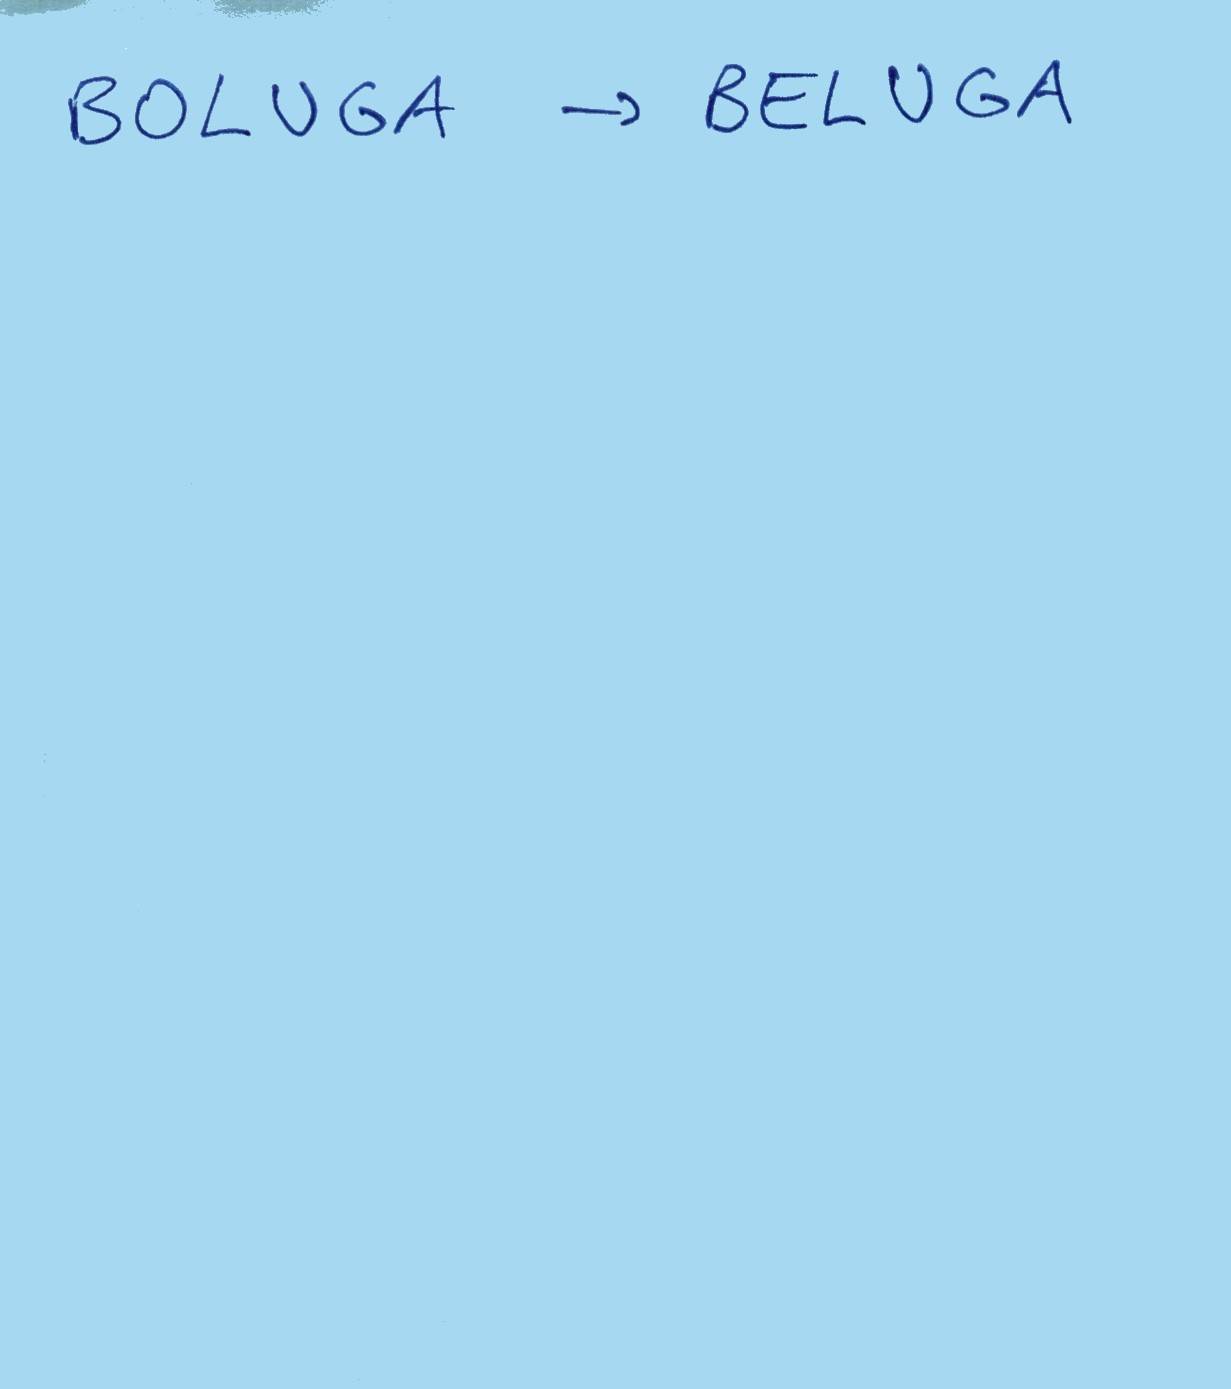 BOLUGA → BELUGA